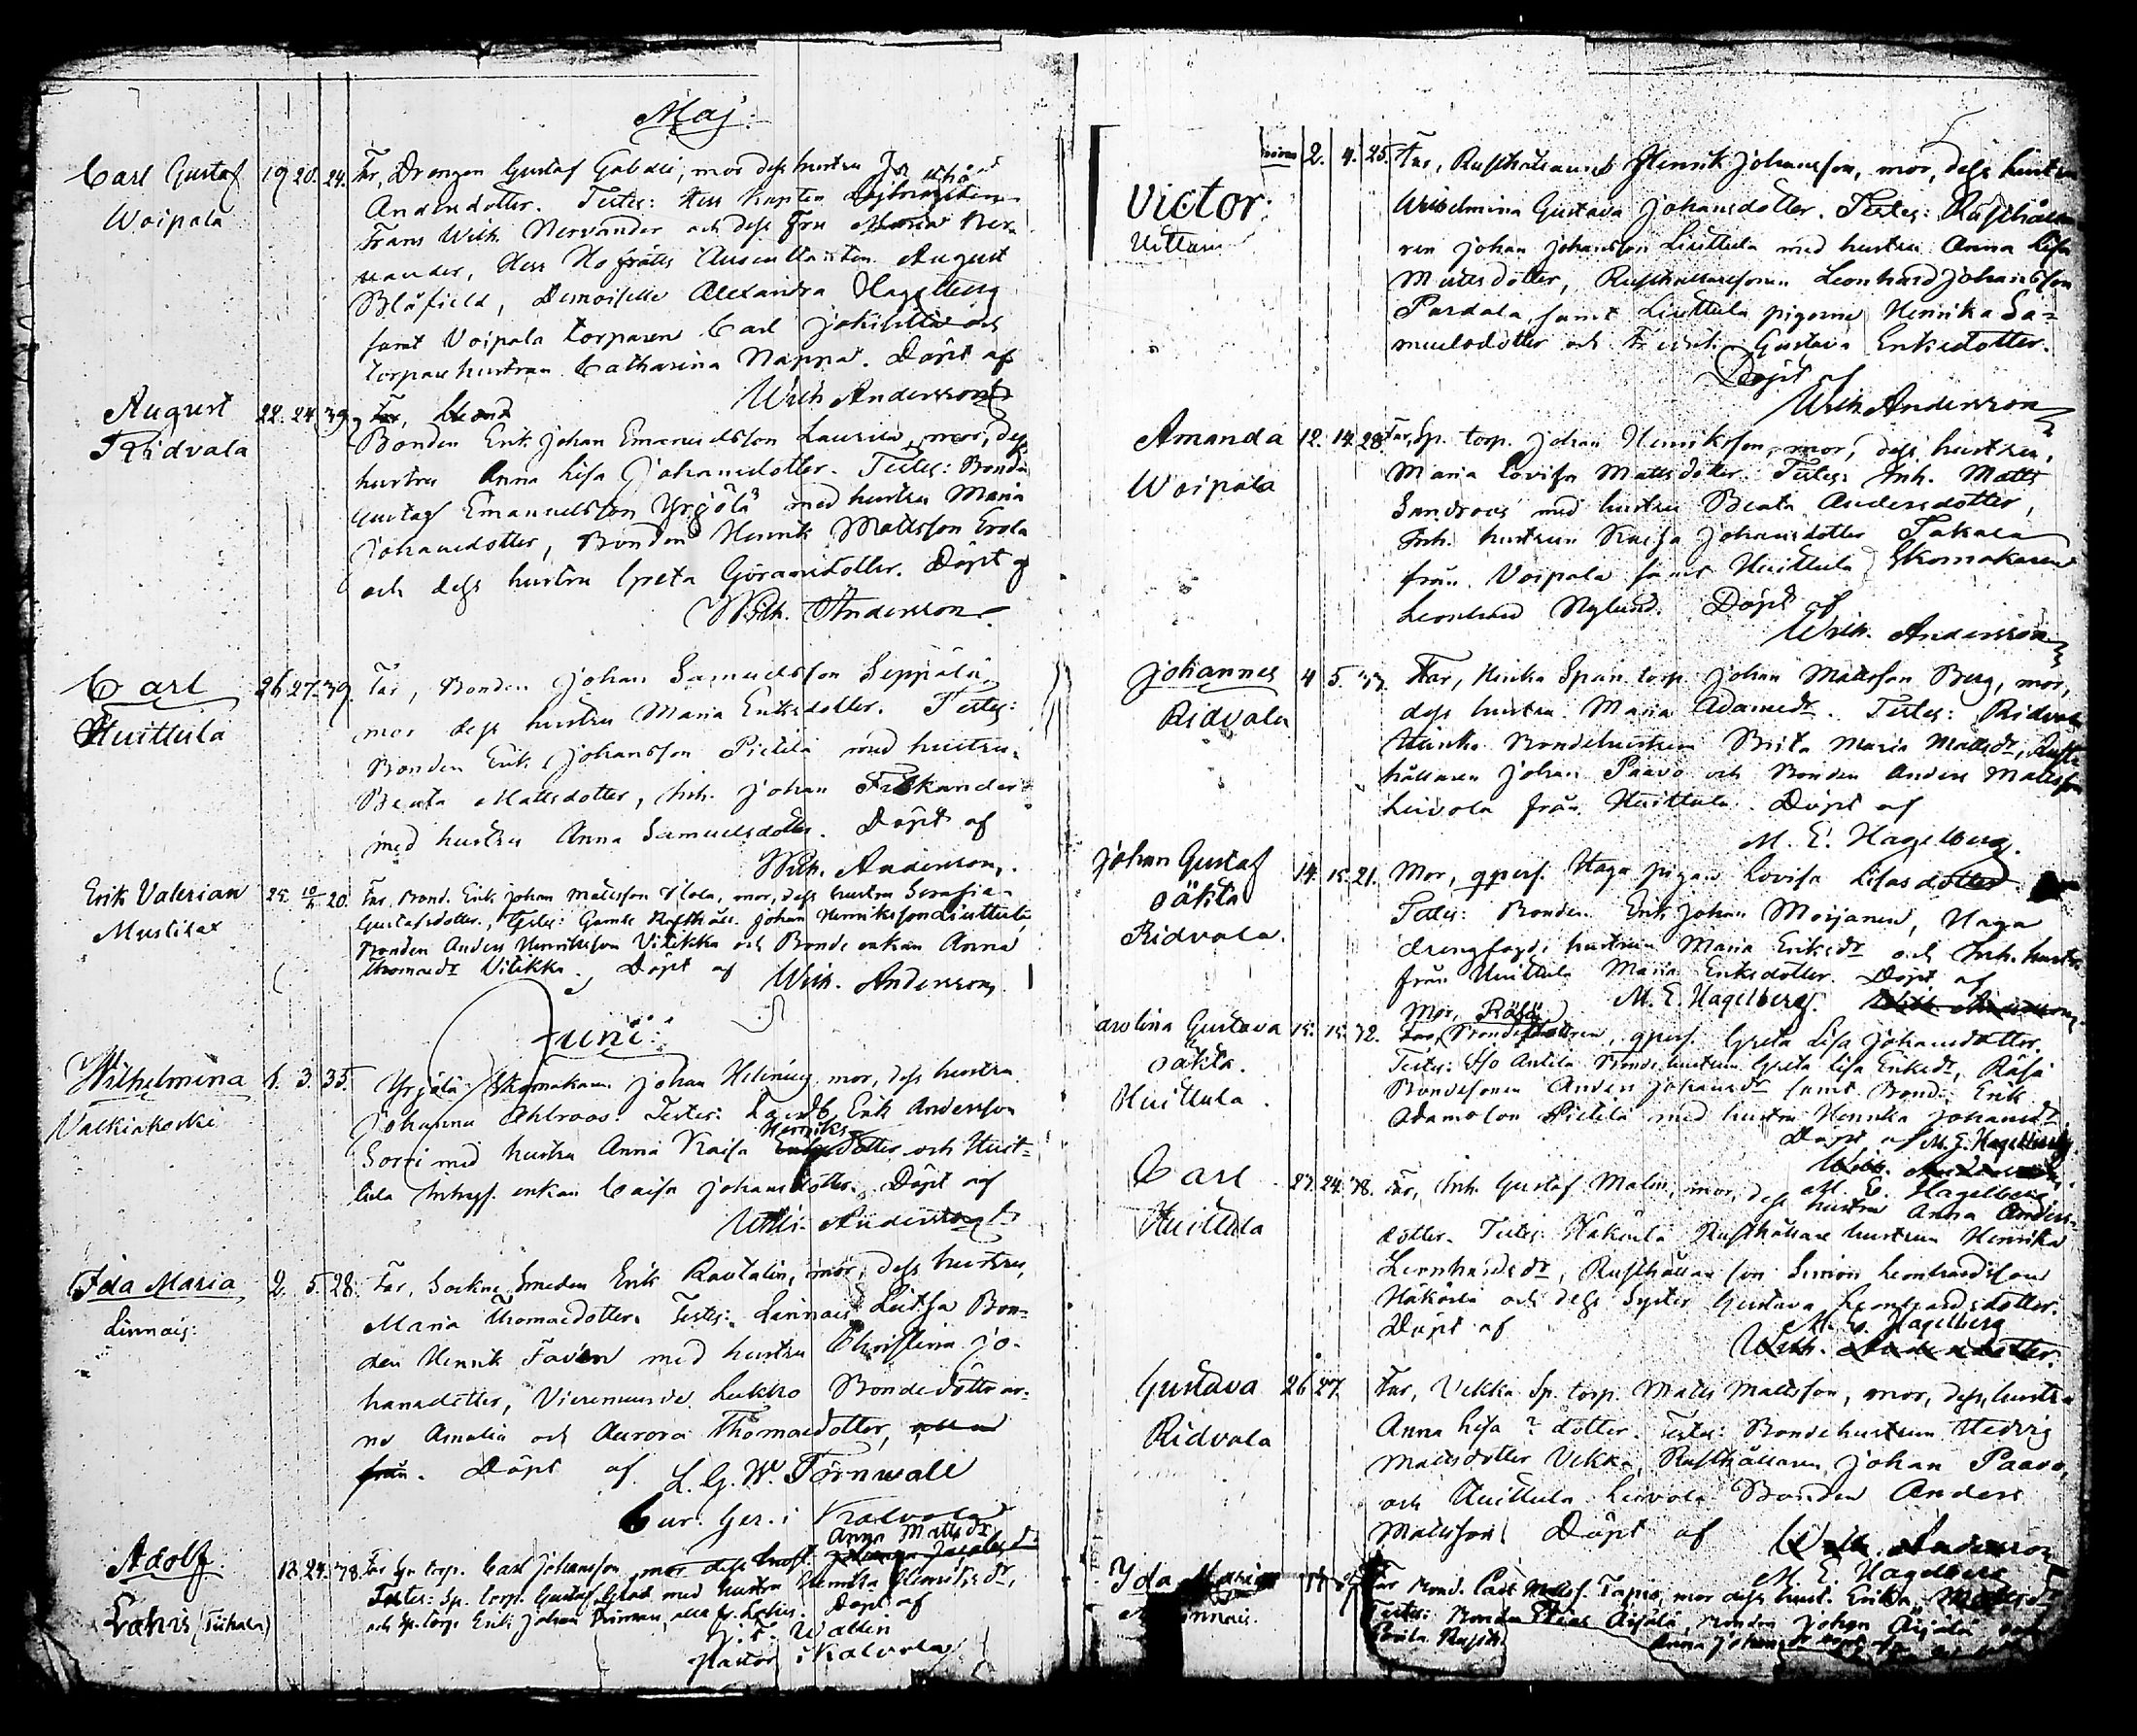 Maj:
Carl Gustaf 19 20. 24. Far, Drengen Gustaf Gabelli, mor dess hustru
Woipala Andersdotter. Testes: Herr Kapten
Frans Wilh. Nervander och dess Fru Maria Ner-
vander, Herr Hofrätts Auscultanten August
Blåfield, Demoiselle Alexandra Hagelberg
samt Voipala torparen Carl och
torpare hustrun Catharina Nappa. Döpt af
Wilh Andersson
August 22. 24. 39. Far,
Ridvala Bonden Erik Johan Emanuelsson Laurila, mor, dess
hustru Anna Lisa Johansdotter. Testes: Bonden
Gustaf Emanuelsson Yrjölä med hustru Maria
Johansdotter, Bonden Henrik Mattsson Erola
och dess hustru Greta Göransdotter. Döpt af
Wilh. Andersson
Carl 26 27. 39. Far, Bonden Johan Samuelsson Seppälä,
Huittula mor dess hustru Maria Eriksdotter. Testes:
Bonden Erik Johansson Pietilä med hustru
Beata Mattsdotter, Inh. Johan
med hustru Anna Samuelsdotter. Döpt af
Wilh. Andersson.
Erik Valerian 25. 20. Far, Bond. Erik Johan Mattsson mor, dess hustru Serafia
Mustila Gustafsdotter, Testes: Gamle Rusthåll. Johan Henriksson Liuttula,
Bonden Anders Henriksson Vitikka och Bonde enkan Anna
Thomasdr Vitikka. Döpt af Wilh. Andersson.
Juni:
Wilhelmina 1. 3. 35. Yrjölä Skomakaren Johan Helenius mor, dess hustru
Valkiakoski Johanna Ahlroos. Testes: Erik Andersson
Henriks
Sorri med hustru Anna Kaisa dotter och Huit-
tula Inhys. enkan Caisa Johansdotter. Döpt af
Wilh. Andersson
Ida Maria 2. 5. 28. Far, Sockne Smeden Erik Rautalin, mor, dess hustru,
Linnais: Maria Thomasdotter. Testes: Linnais Bon-
den Henrik Favén med hustru Christina Jo-
hansdotter, Vieremunde Lukko Bondedöttrar-
na Amalia och Aurora Thomasdotter,
från. Döpt af L. G. W. Törnwall
Cur. Ger. i Kalvola
Anna Mattsdr
Adolf 18. 24. 38. Far Sp. torp. Carl Johansson, mor dess hust.
Lahis (Tiikala) Testes: Sp. torp. Gustaf med hustru Henrika
och Sp. torp. Erik Johan alla fr. Lahis. Döpt af
Wallin
Pastor i Kalvola
2. 4. 25. Far, Rusthållaren Henrik Johansson, mor, dess hustru
Victor: Wilhelmina Gustava Johansdotter. Testes: Rusthålla
Uittamo ren Johan Johansson Liuttula med hustru Anna Lisa
Mattsdotter, Rusthållaresonen Leonhard Johansson
Pardala, samt Liuttula pigorna Henrika Sa-
muelsdotter och Gustava Eriksdotter.
Döpt af
Wilh Andersson
Amanda 12. 14. 28. Far, Sp. torp. Johan Henriksson, mor, dess hustru,
Woipala Maria Lovisa Mattsdotter. Testes: Inh. Matts
Sandroos med hustru Beata Andersdotter,
Inh. hustrun Kaisa Johansdotter Takala
från Voipala samt Huittula Skomakaren
Leonhard Nylund. Döpt af
Wilh. Andersson
Johannes 4 5. 37. Far, Sp. torp. Johan Mattsson Berg, mor,
Ridvala dess hustru. Maria Adamsdr. Testes: Ridvala
Bondehustrun Brita Maria Mattsdr, Rust-
hållaren Johan Paavo och Bonden Anders Mattsson
Leivola från Huittula. Döpt af
M. E. Hagelberg.
Johan Gustaf 14. 15. 21. Mor, qpers. Haga pigan Lovisa Lisasdotter.
oäkta Testes: Bonden Erik Johan Moijanen, Haga
Ridvala. drengfogds hustrun Maria Eriksdr och Inh. hustrun
från Huittula Maria Eriksdotter. Döpt af
M. E. Hagelberg.
Mor, Räsä
arolina Gustava 15. 15. 32. Bondedottren, qpers. Greta Lisa Johansdotter,
oäkta. Testes: Antila Bonde hustrun Greta Lisa Eriksdr, Räsä
Huittula. Bondesonen Anders Johansdr samt Bonden Erik
Adamsson Pietilä med hustru Henrika Johansdr
Döpt af M. E. Hagelberg
M. E. Hagelberg
Carl 23. 24. 38. Far, Inh. Gustaf Malin, mor, dess hustru Anna Anders-
Huittula dotter. Testes: Häköilä Rusthållare hustrun Henrika
Leonhardsdr, Rusthållare son Simon Leonhardsson
Häköilä och dess Syster Gustava Leonhardsdotter.
Döpt af M. E. Hagelberg
Gustava 26 27. Far, Vekka Sp. torp. Matts Mattsson, mor, dess hustru
Ridvala Anna Lisa ? dotter. Testes: Bondehustrun Hedvig
Mattsdotter Vekka, Rusthållaren Johan Paavo,
och Huittula Leivola Bonden Anders
Mattsson. Döpt af
M. E. Hagelberg
Ida Maria Far Bond. mor dess hust. Erika
Testes: Bonden Bonden Johan
Anna